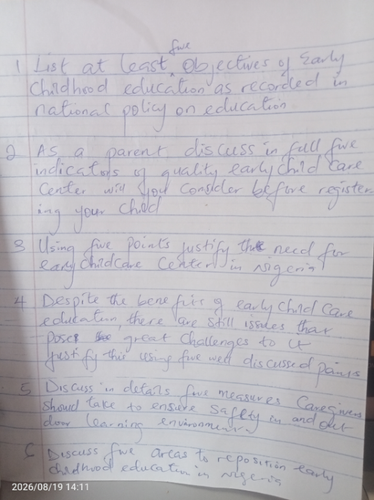 five
1 List at least objectives of Early
childhood education as recorded in
national policy on education
2 As a parent discuss in full five
indicators of quality early child care
center will you consider before register
ing your child
3 Using five points justify the need for
early childcare center in Nigeria
4 Despite the benefits of early child care
education, there are still issues that
poses great challenges to it
justify this using five well discussed points
5 Discuss in details five measures Caregivers
should take to ensure safety in and out
door learning environment
6 Discuss five areas to reposition early
childhood education in Nigeria
2026/08/19 14:11